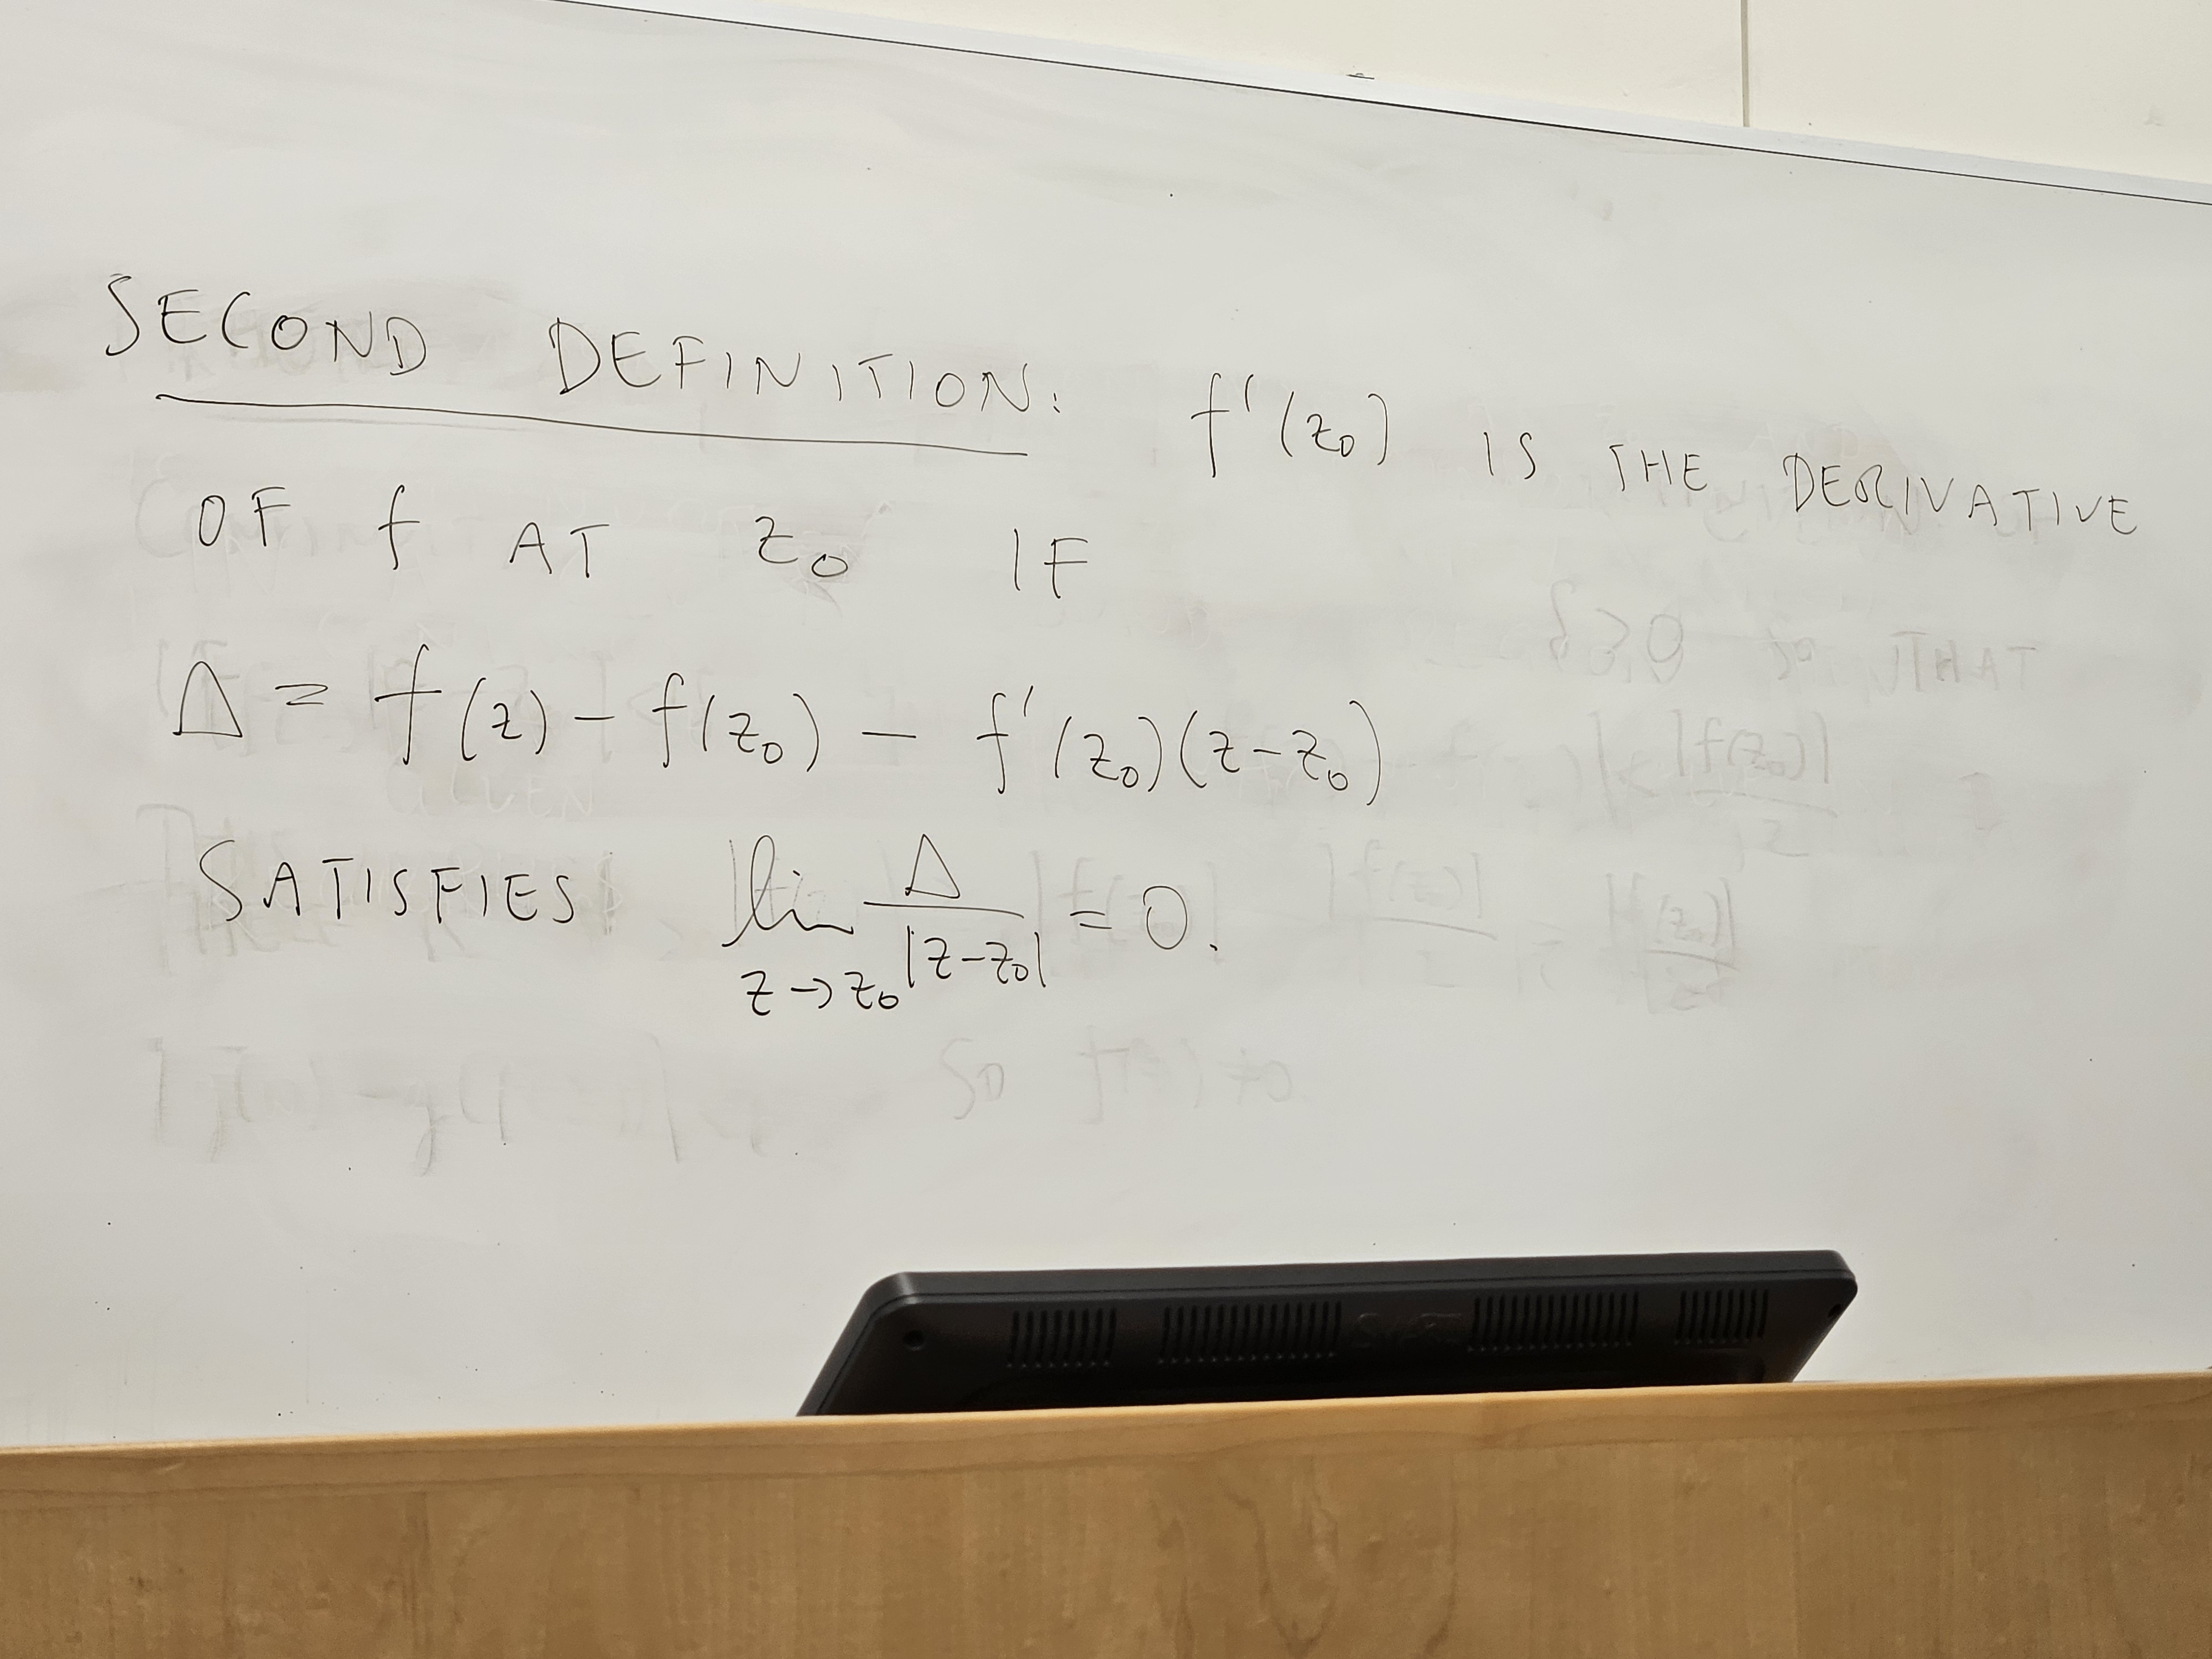 SECOND DEFINITION: f'(z₀) IS THE DERIVATIVE
OF f AT z₀ IF
Δ = f(z) - f(z₀) - f'(z₀)(z-z₀)
SATISFIES lim_{z→z₀} Δ/|z-z₀| = 0.